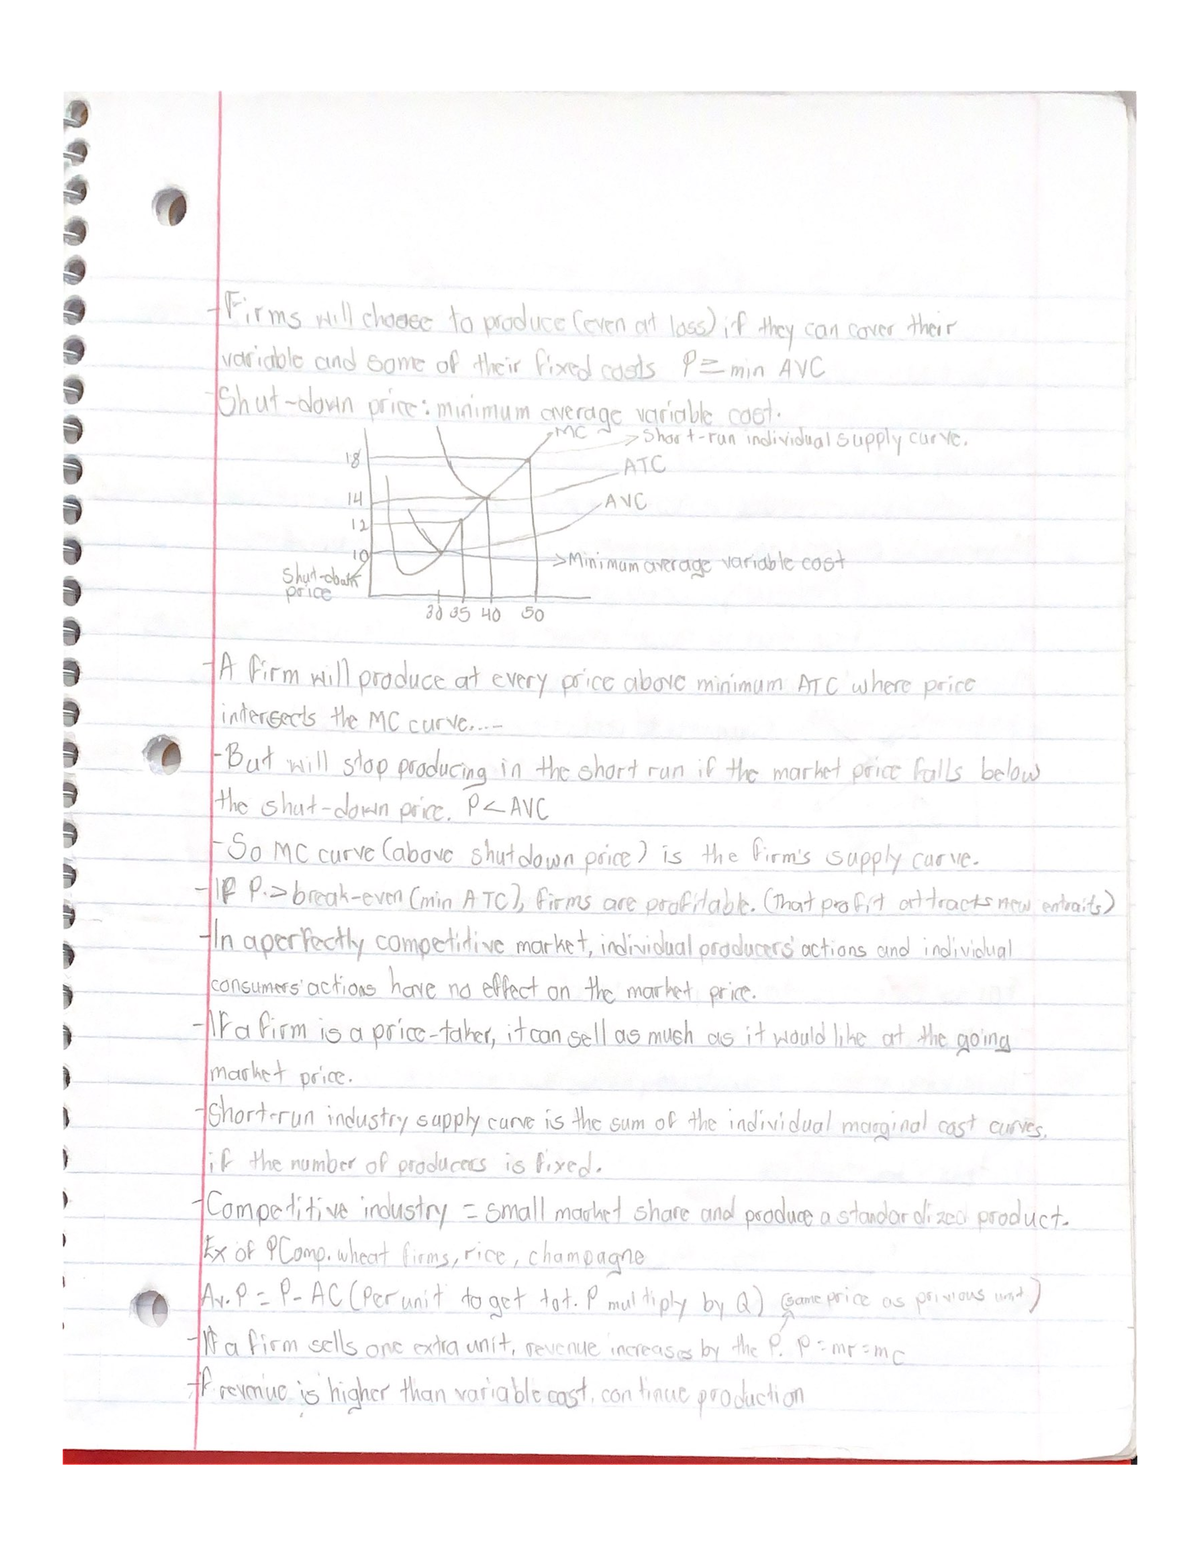 -Firms will choose to produce (even at loss) if they can cover their
variable and some of their fixed costs P≥min AVC
-Shut-down price: minimum average variable cost.
MC → Short-run individual supply curve.
18
ATC
14
AVC
12
10
→Minimum average variable cost
Shut-down
price
30 35 40 50
-A firm will produce at every price above minimum ATC where price
intersects the MC curve....-
-But will stop producing in the short run if the market price falls below
the shut-down price. P<AVC
-So MC curve (above shutdown price) is the firm's supply curve.
-If P.> break-even (min ATC), firms are profitable. (That profit attracts new entraits)
-In a perfectly competitive market, individual producers' actions and individual
consumers' actions have no effect on the market price.
-If a firm is a price-taker, it can sell as mush as it would like at the going
market price.
-Short-run industry supply curve is the sum of the individual marginal cost curves,
if the number of producers is fixed.
-Competitive industry = small market share and produce a standardized product.
Ex of PComp. wheat firms, rice, champagne
Av. P = P- AC (Per unit to get tot. P multiply by Q) (same price as previous unit)
-If a firm sells one extra unit, revenue increases by the P. P=mr=mc
-If revenue is higher than variable cost, continue production